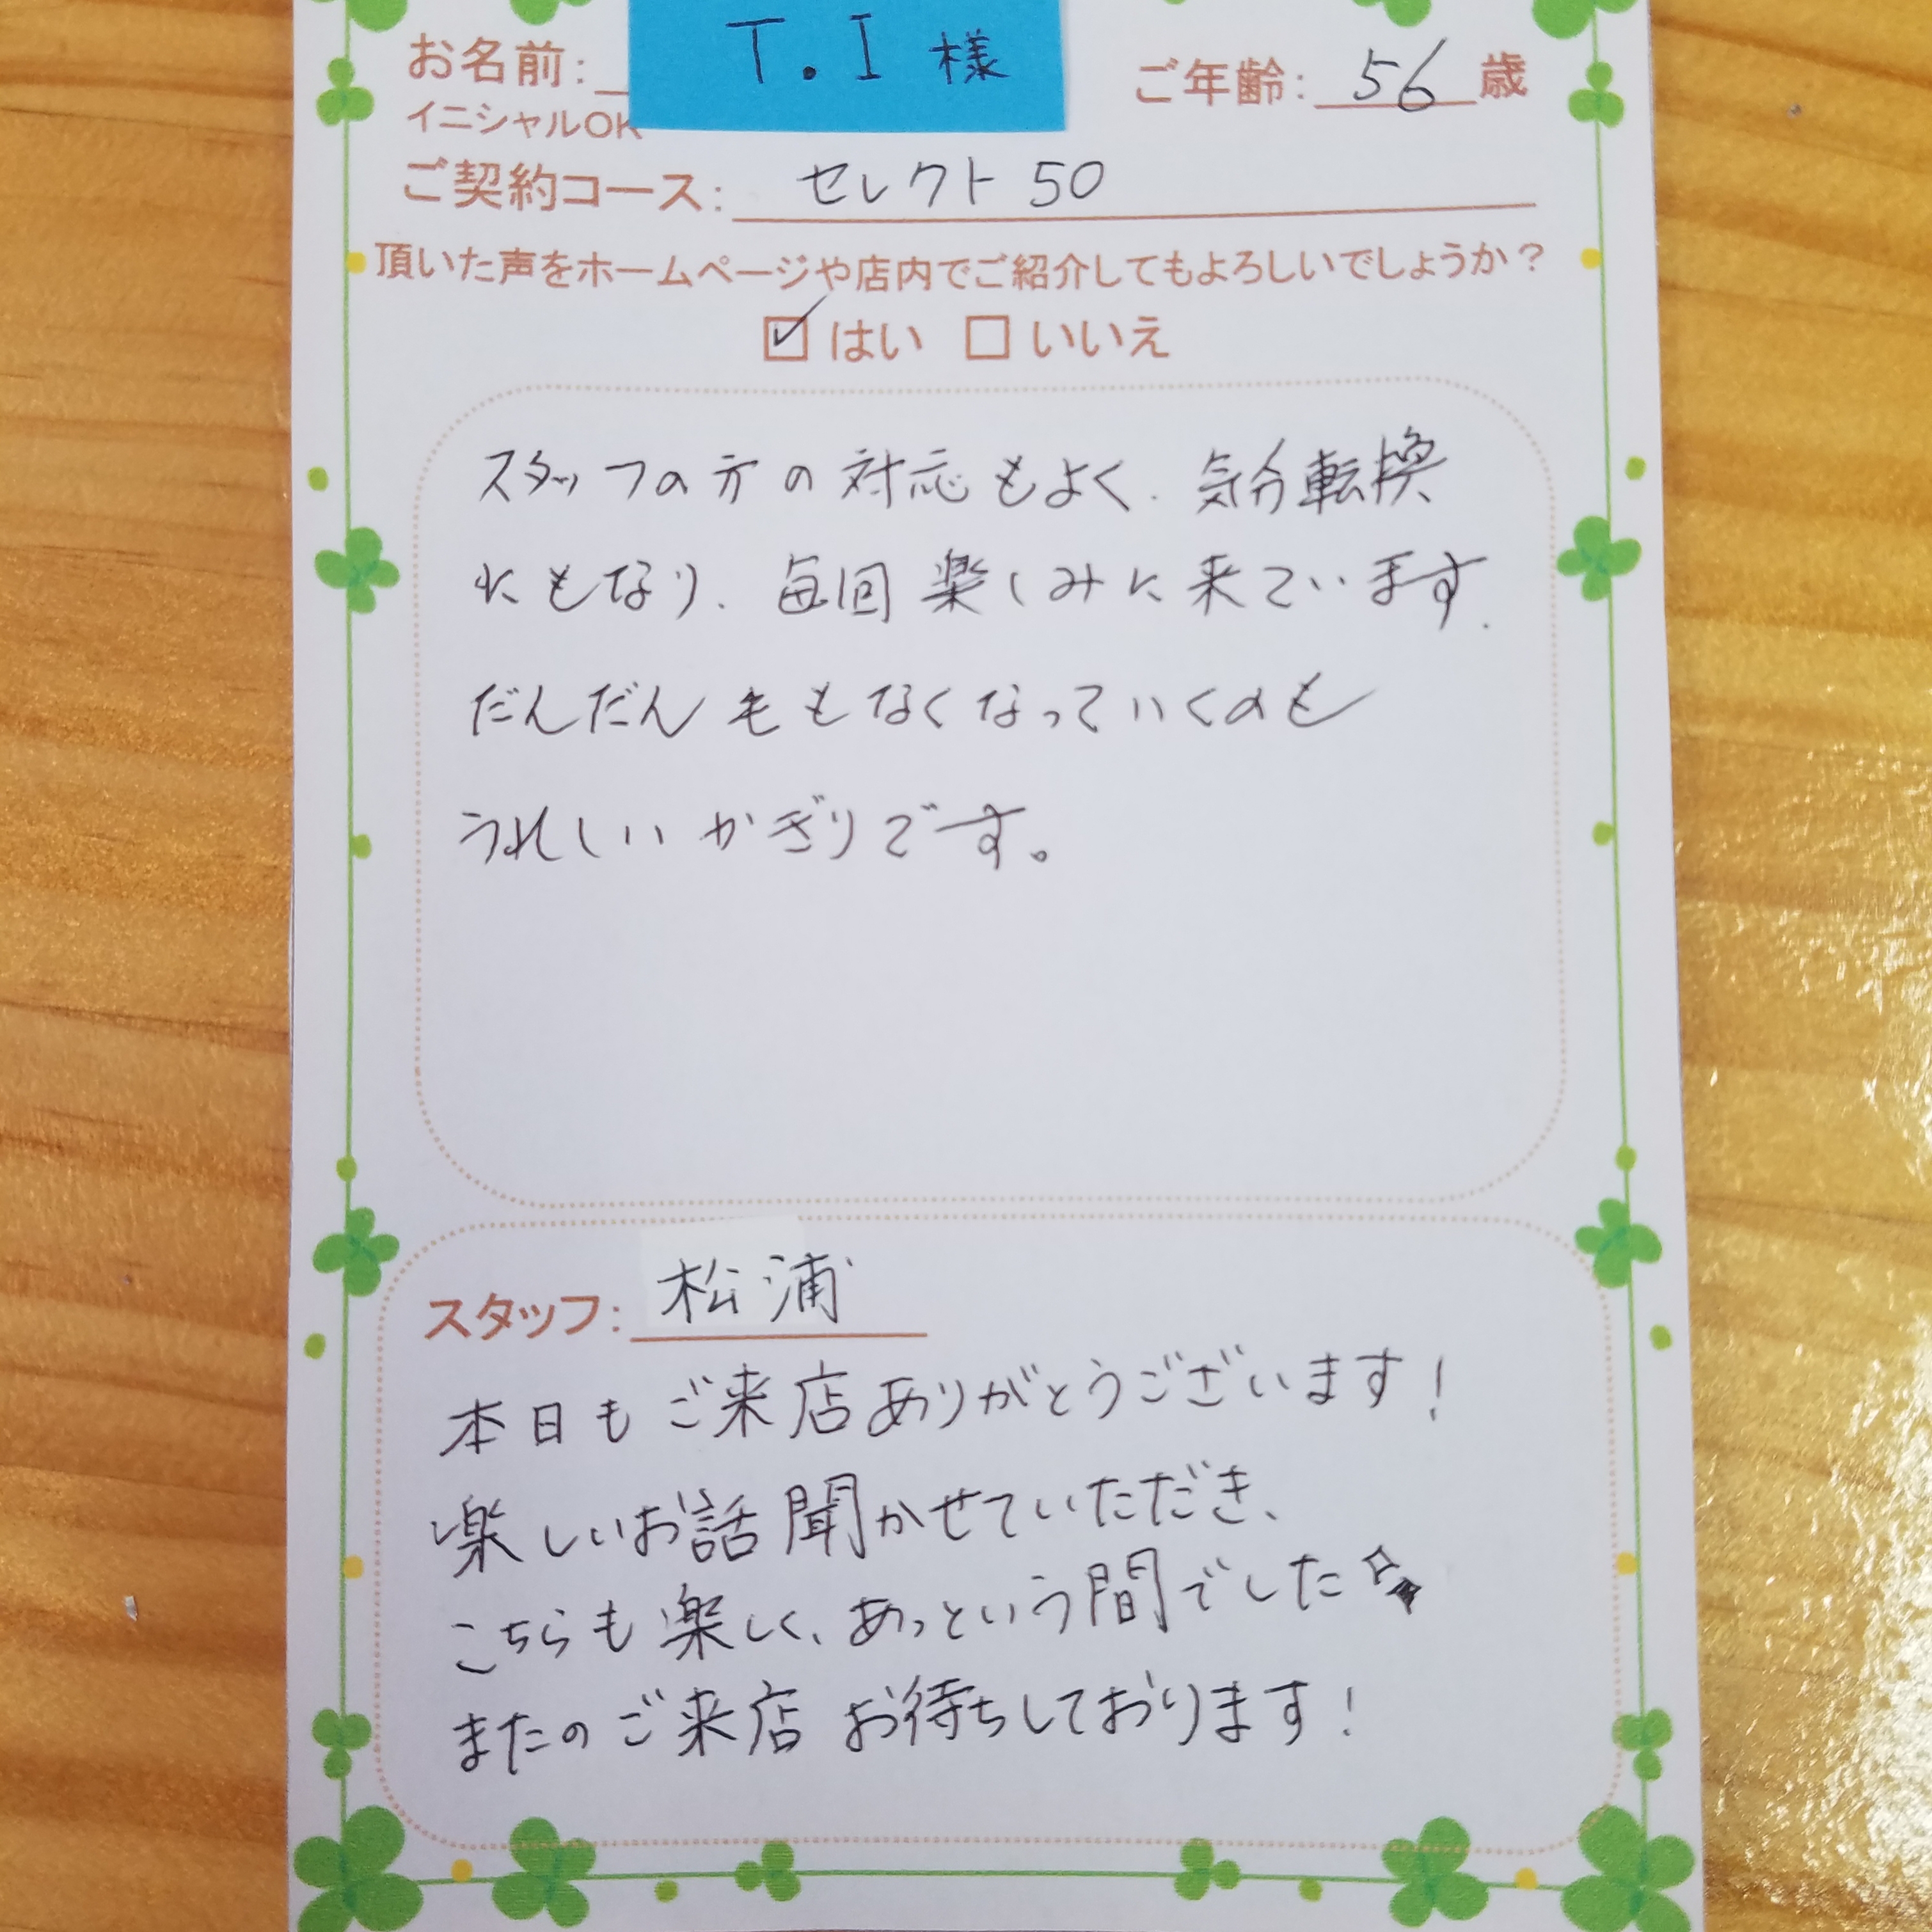 お名前: T.I 様 ご年齢: 56 歳
イニシャルOK
ご契約コース: セレクト50
頂いた声をホームページや店内でご紹介してもよろしいでしょうか?
☑はい □いいえ
スタッフの方の対応もよく、気分転換
にもなり、毎回楽しみに来ています.
だんだん毛もなくなっていくのも
うれしいかぎりです。
スタッフ: 松浦
本日もご来店ありがとうございます!
楽しいお話聞かせていただき、
こちらも楽しく、あっという間でした
またのご来店お待ちしております!